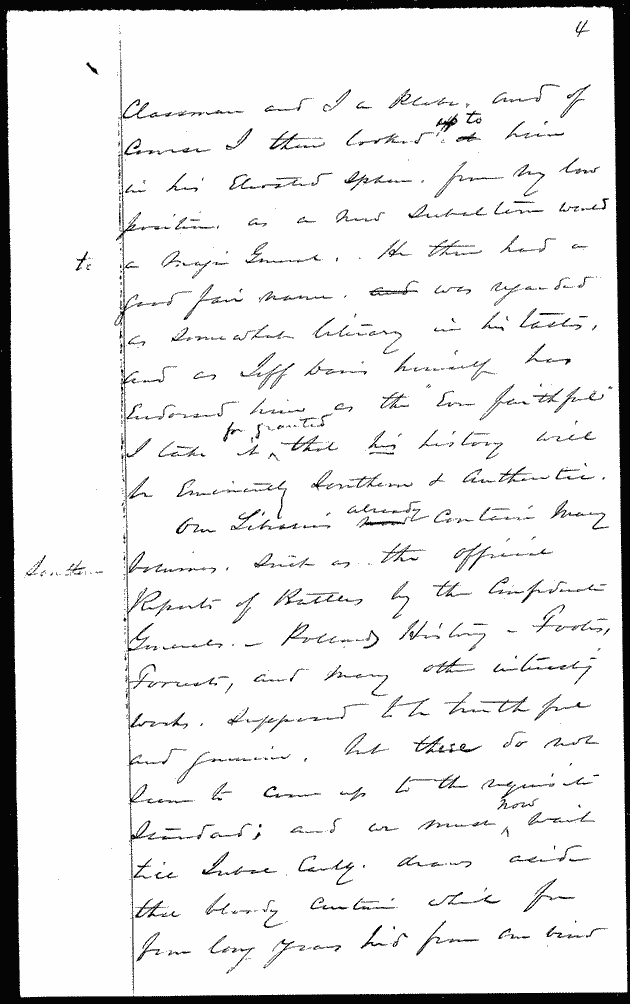 4
Classman and I a Plebe. and of
Course I then looked up to him
in his Elevated Sphere. from my low
position. as a new Subaltern would
to
a Major General. He then had a
good fair name. and was regarded
as somewhat literary in his tastes,
and as Jeff Davis himself has
Endorsed him as the "Ever faithful"
for granted
I take it that his history will
be Eminently Southern & Authentic.
already
Our Libraries must contain many
Southern
volumes. Such as the official
Reports of Battles by the Confederate
Generals. - Pollards History - Footes,
Forrests, and many other interesting
works. Supposed to be truthful
and genuine. but these do not
seem to come up to the requisite
now
Standard; and we must wait
till Jubal Early. draws aside
the bloody curtain which for
long years hid from our